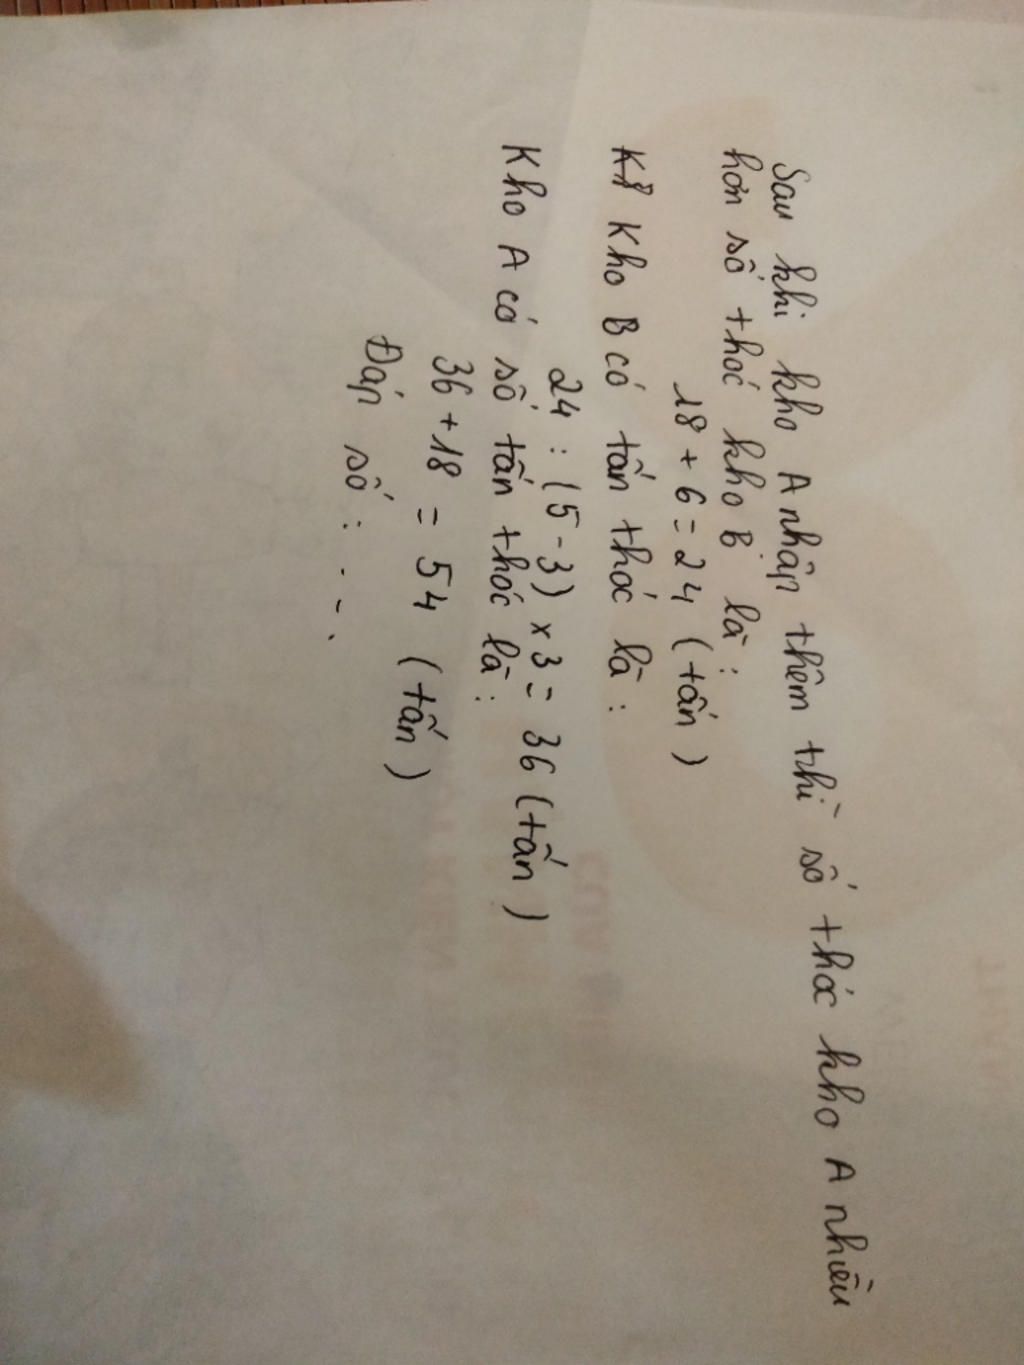 Sau khi kho A nhập thêm thì số thóc kho A nhiều
hơn số thóc kho B là :
18 + 6 = 24 (tấn)
Kho B có tấn thóc là :
24 : (5 - 3) x 3 = 36 (tấn)
Kho A có số tấn thóc là :
36 + 18 = 54 (tấn)
Đáp số : . - .